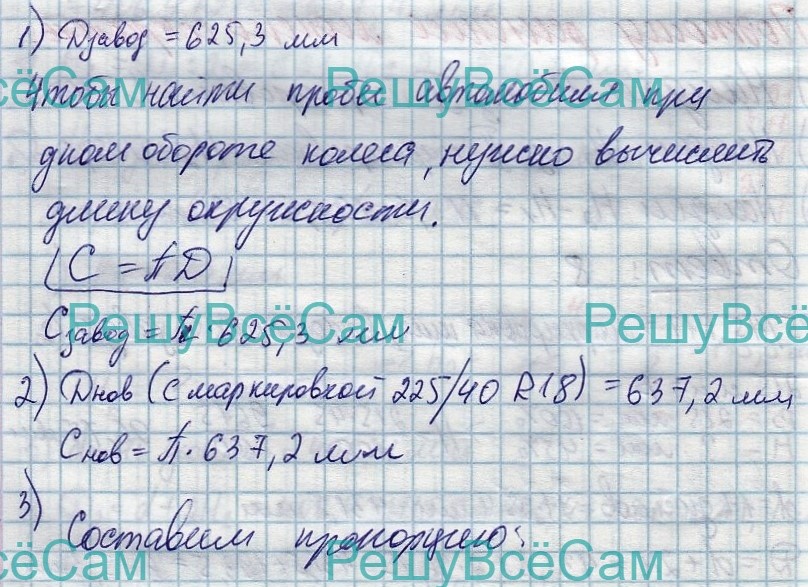 1) Dзавод = 625,3 мм
Чтобы найти пробы автомобиля при
дном обороте колеса, нужно вычислить
длину окружности.
C = πD
Cзавод = π · 625,3 мм
2) Dнов (с маркировкой 225/40 R18) = 637,2 мм
Cнов = π · 637,2 мм
3)
Составим пропорцию:
РешуВсёСам
РешуВсёСам
РешуВсё
ёСам
РешуВсёСам